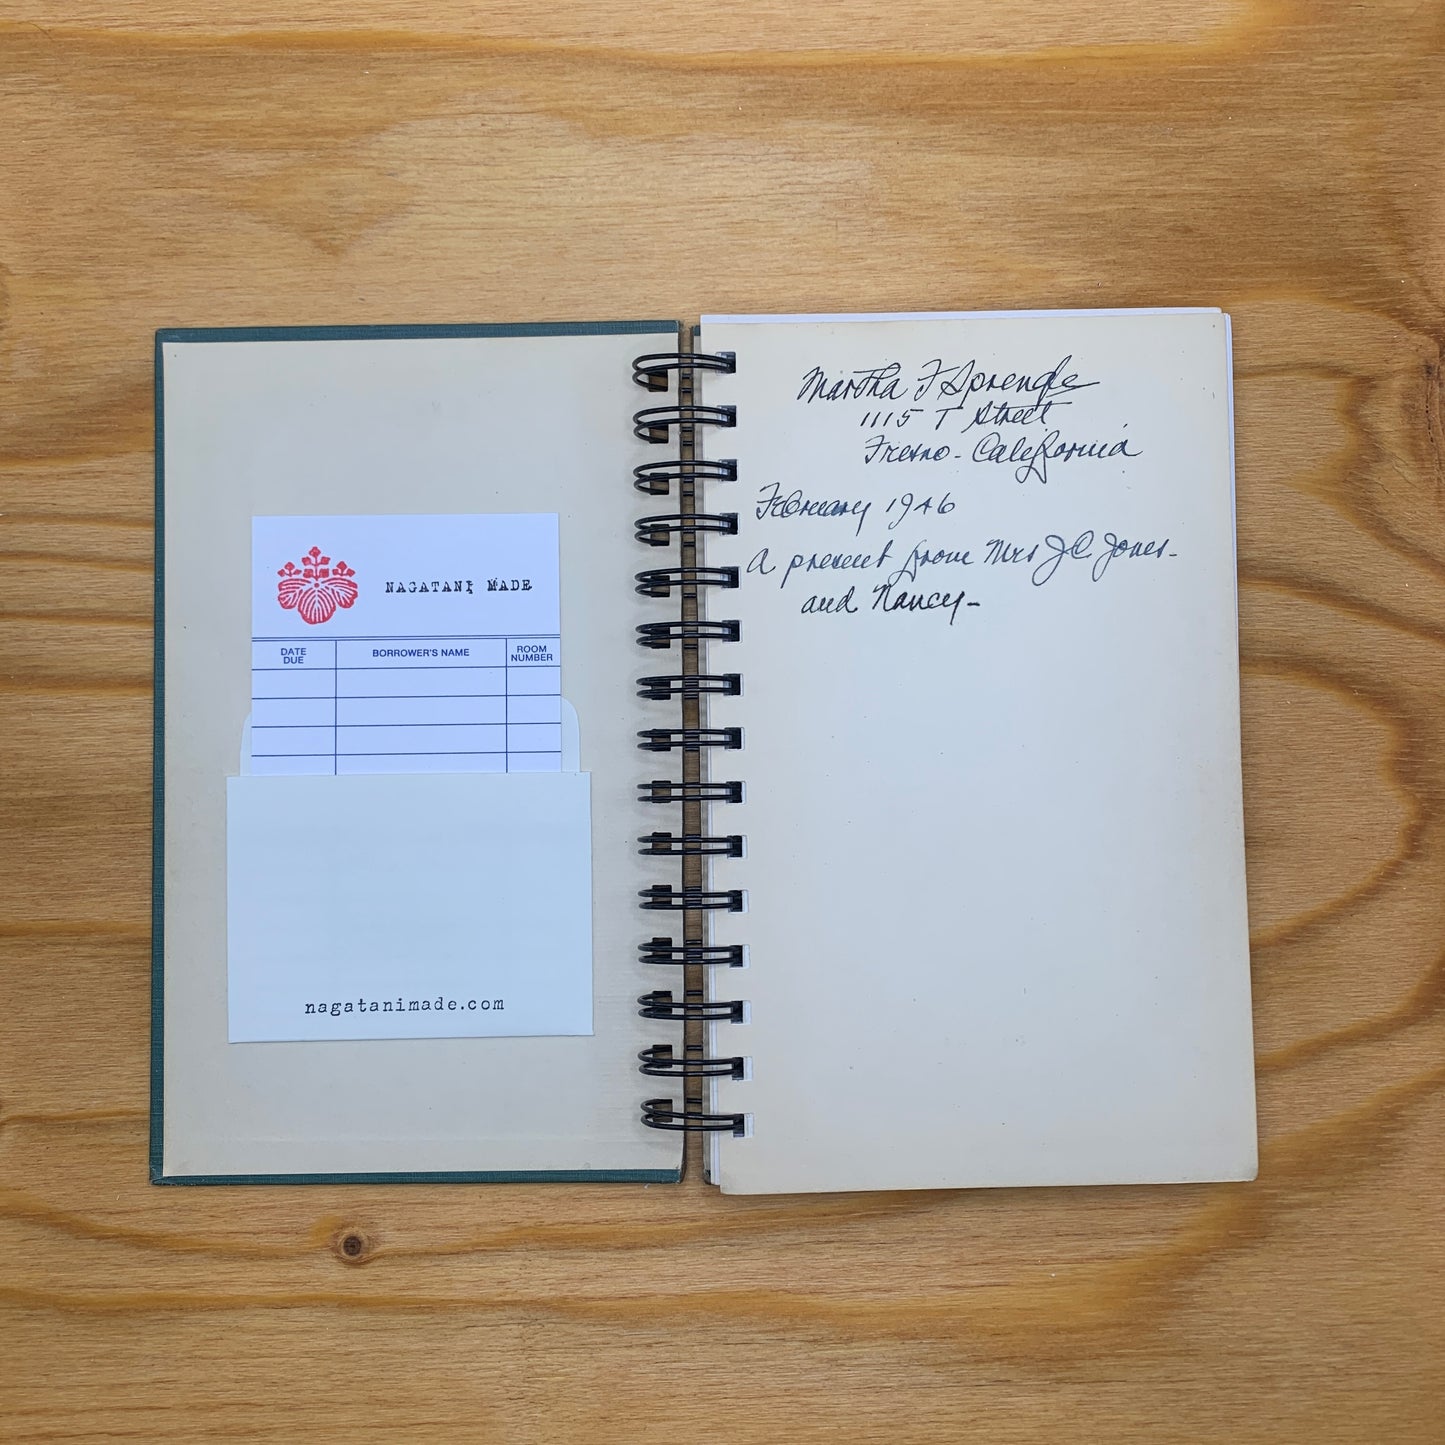 NAGATANI MADE
DATE DUE
BORROWER'S NAME
ROOM NUMBER
nagatanimade.com
Martha F Sprengle
1115 T Street
Fresno - California
February 1946
A present from Mrs J C Jones -
and Nancy -